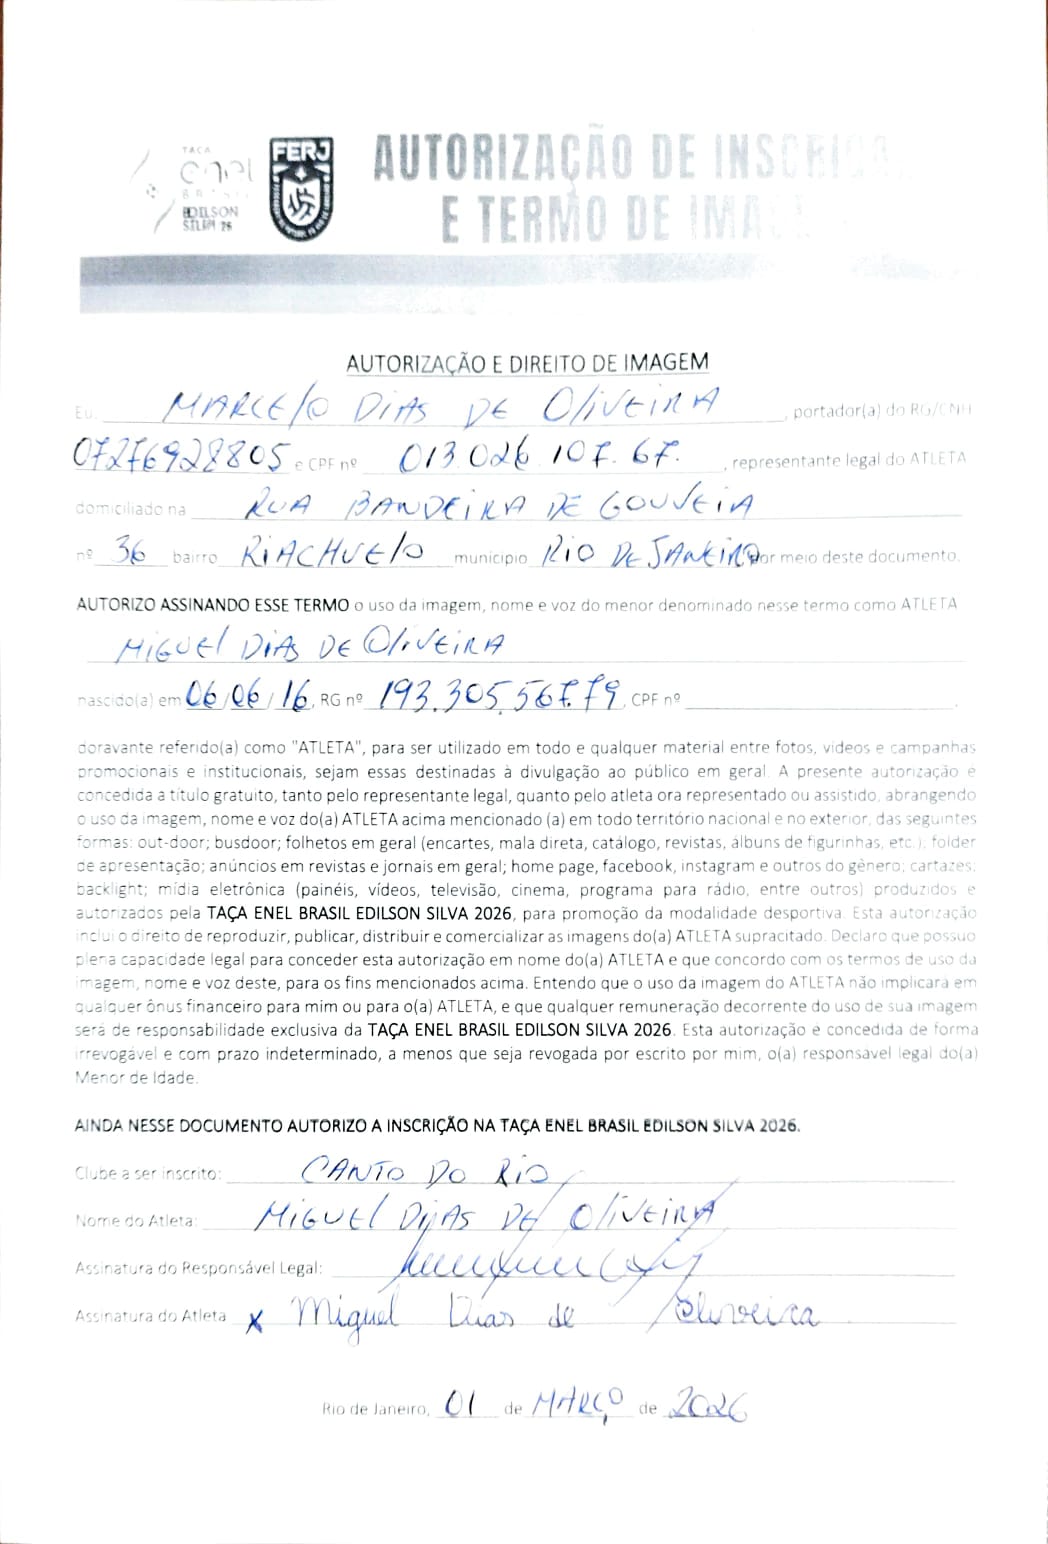 TAÇA
enel
BRASIL
EDILSON
SILVA 26
FERJ
AUTORIZAÇÃO DE INSCRIÇÃ
E TERMO DE IMAGE
AUTORIZAÇÃO E DIREITO DE IMAGEM
Eu, MARCELO DIAS DE OLIVEIRA, portador(a) do RG/CNH
07276928805 e CPF nº 013.026.107.67. , representante legal do ATLETA
domiciliado na RUA BANDEIRA DE GOUVEIA
nº 36 bairro RIACHUELO município RIO DE JANEIRO por meio deste documento.
AUTORIZO ASSINANDO ESSE TERMO o uso da imagem, nome e voz do menor denominado nesse termo como ATLETA
MIGUEL DIAS DE OLIVEIRA
nascido(a) em 06/06/16, RG nº 193.305.567.79, CPF nº
doravante referido(a) como "ATLETA", para ser utilizado em todo e qualquer material entre fotos, vídeos e campanhas
promocionais e institucionais, sejam essas destinadas à divulgação ao público em geral. A presente autorização é
concedida a título gratuito, tanto pelo representante legal, quanto pelo atleta ora representado ou assistido, abrangendo
o uso da imagem, nome e voz do(a) ATLETA acima mencionado (a) em todo território nacional e no exterior, das seguintes
formas: out-door; busdoor; folhetos em geral (encartes, mala direta, catálogo, revistas, álbuns de figurinhas, etc.); folder
de apresentação; anúncios em revistas e jornais em geral; home page, facebook, instagram e outros do gênero; cartazes;
backlight; mídia eletrônica (painéis, vídeos, televisão, cinema, programa para rádio, entre outros) produzidos e
autorizados pela TAÇA ENEL BRASIL EDILSON SILVA 2026, para promoção da modalidade desportiva. Esta autorização
inclui o direito de reproduzir, publicar, distribuir e comercializar as imagens do(a) ATLETA supracitado. Declaro que possuo
plena capacidade legal para conceder esta autorização em nome do(a) ATLETA e que concordo com os termos de uso da
imagem, nome e voz deste, para os fins mencionados acima. Entendo que o uso da imagem do ATLETA não implicará em
qualquer ônus financeiro para mim ou para o(a) ATLETA, e que qualquer remuneração decorrente do uso de sua imagem
será de responsabilidade exclusiva da TAÇA ENEL BRASIL EDILSON SILVA 2026. Esta autorização é concedida de forma
irrevogável e com prazo indeterminado, a menos que seja revogada por escrito por mim, o(a) responsável legal do(a)
Menor de Idade.
AINDA NESSE DOCUMENTO AUTORIZO A INSCRIÇÃO NA TAÇA ENEL BRASIL EDILSON SILVA 2026.
Clube a ser inscrito: CANTO DO RIO
Nome do Atleta: MIGUEL DIAS DE OLIVEIRA
Assinatura do Responsável Legal:
Assinatura do Atleta X Miguel Dias de Oliveira
Rio de Janeiro, 01 de MARÇO de 2026